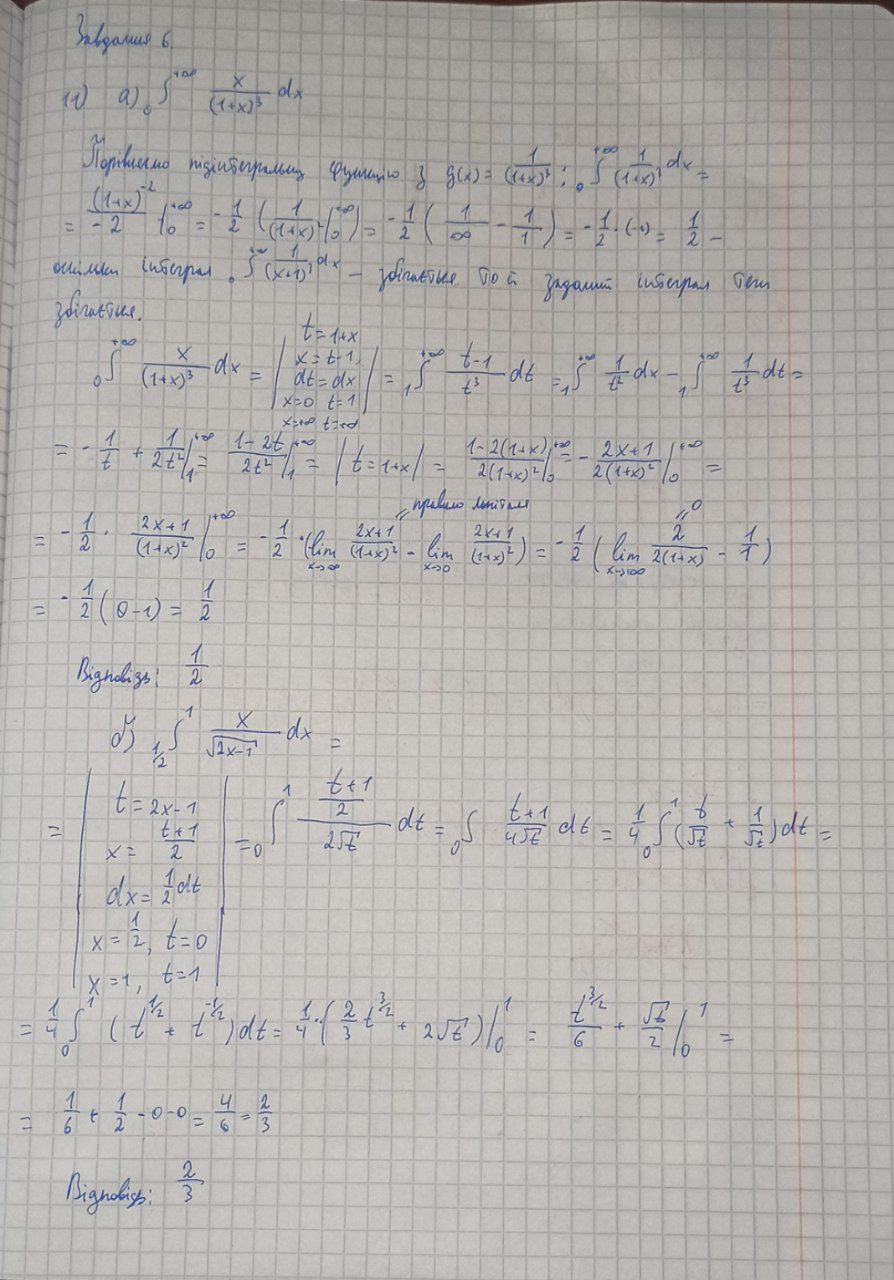 Завдання 6.
11) а) ₀∫^{+∞} x/(1+x)³ dx
Порівнюємо підінтегральну функцію з g(x) = 1/(1+x)³ : ₀∫^{+∞} 1/(1+x)³ dx =
= (1+x)⁻²/-2 |₀^{+∞} = -1/2 (1/(1+x)² |₀^{+∞}) = -1/2 (1/∞ - 1/1) = -1/2 · (-1) = 1/2 –
оскільки інтеграл ₀∫^{+∞} 1/(x+1)³ dx – збігається то й заданий інтеграл теж
збігається.
₀∫^{+∞} x/(1+x)³ dx = | t=1+x x=t-1, dt=dx x=0 t=1 x=+∞ t=+∞ | = ₁∫^{+∞} (t-1)/t³ dt = ₁∫^{+∞} 1/t² dx - ₁∫^{+∞} 1/t³ dt =
= -1/t + 1/2t² |₁^{+∞} = (1-2t)/2t² |₁^{+∞} = | t=1+x | = (1-2(1+x))/2(1+x)² |₀^{+∞} = - (2x+1)/2(1+x)² |₀^{+∞} =
правило Лопіталя
= -1/2 · (2x+1)/(1+x)² |₀^{+∞} = -1/2 · (lim_{x→∞} (2x+1)/(1+x)² - lim_{x→0} (2x+1)/(1+x)²) = -1/2 (lim_{x→+∞} 2/2(1+x) - 1/1)
= 0
= -1/2 (0-1) = 1/2
Відповідь: 1/2
б) _{1/2}∫¹ x/√(2x-1) dx =
= | t=2x-1 x=(t+1)/2 dx=1/2 dt x=1/2, t=0 x=1, t=1 | = ₀∫¹ ((t+1)/2)/(2√t) dt = ₀∫ (t+1)/(4√t) dt = 1/4 ₀∫¹ (t/√t + 1/√t) dt =
= 1/4 ₀∫¹ (t^{1/2} + t^{-1/2}) dt = 1/4 · (2/3 t^{3/2} + 2√t) |₀¹ = t^{3/2}/6 + √t/2 |₀¹ =
= 1/6 + 1/2 - 0 - 0 = 4/6 = 2/3
Відповідь: 2/3